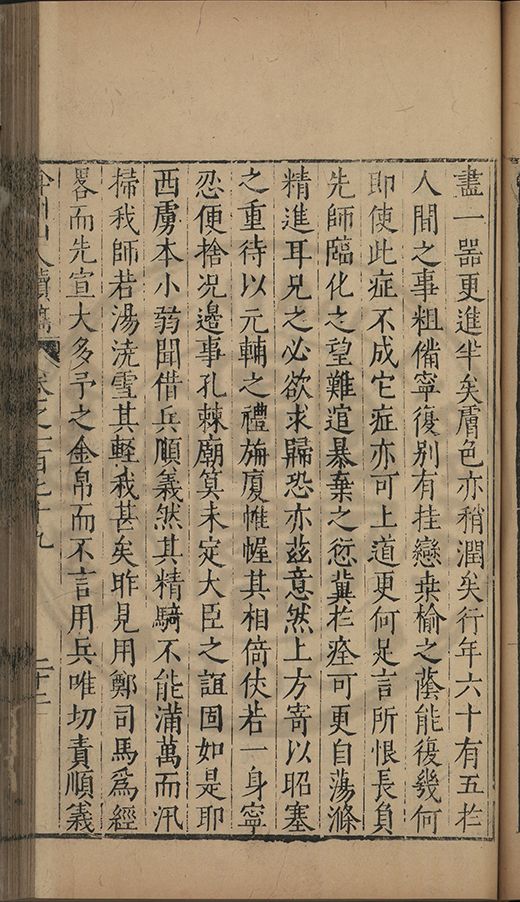 盡一器更進半矣膚色亦稍潤矣行年六十有五於
人間之事粗備寧復別有挂戀桑榆之蔭能復幾何
即使此症不成它症亦可上道更何足言所恨長負
先師臨化之望難逭暴棄之愆冀於痊可更自蕩滌
精進耳兄之必欲求歸恐亦茲意然上方寄以昭塞
之重待以元輔之禮旃廈帷幄其相倚伏若一身寧
忍便捨況邉事孔棘廟筭未定大臣之誼固如是耶
西虜本小弱聞借兵順義然其精騎不能滿萬而汛
掃我師若湯澆雪其輕我甚矣昨見用鄭司馬爲經
畧而先宣大多予之金帛而不言用兵唯切責順義
弇州山人續稿
卷之一百七十九
二十二